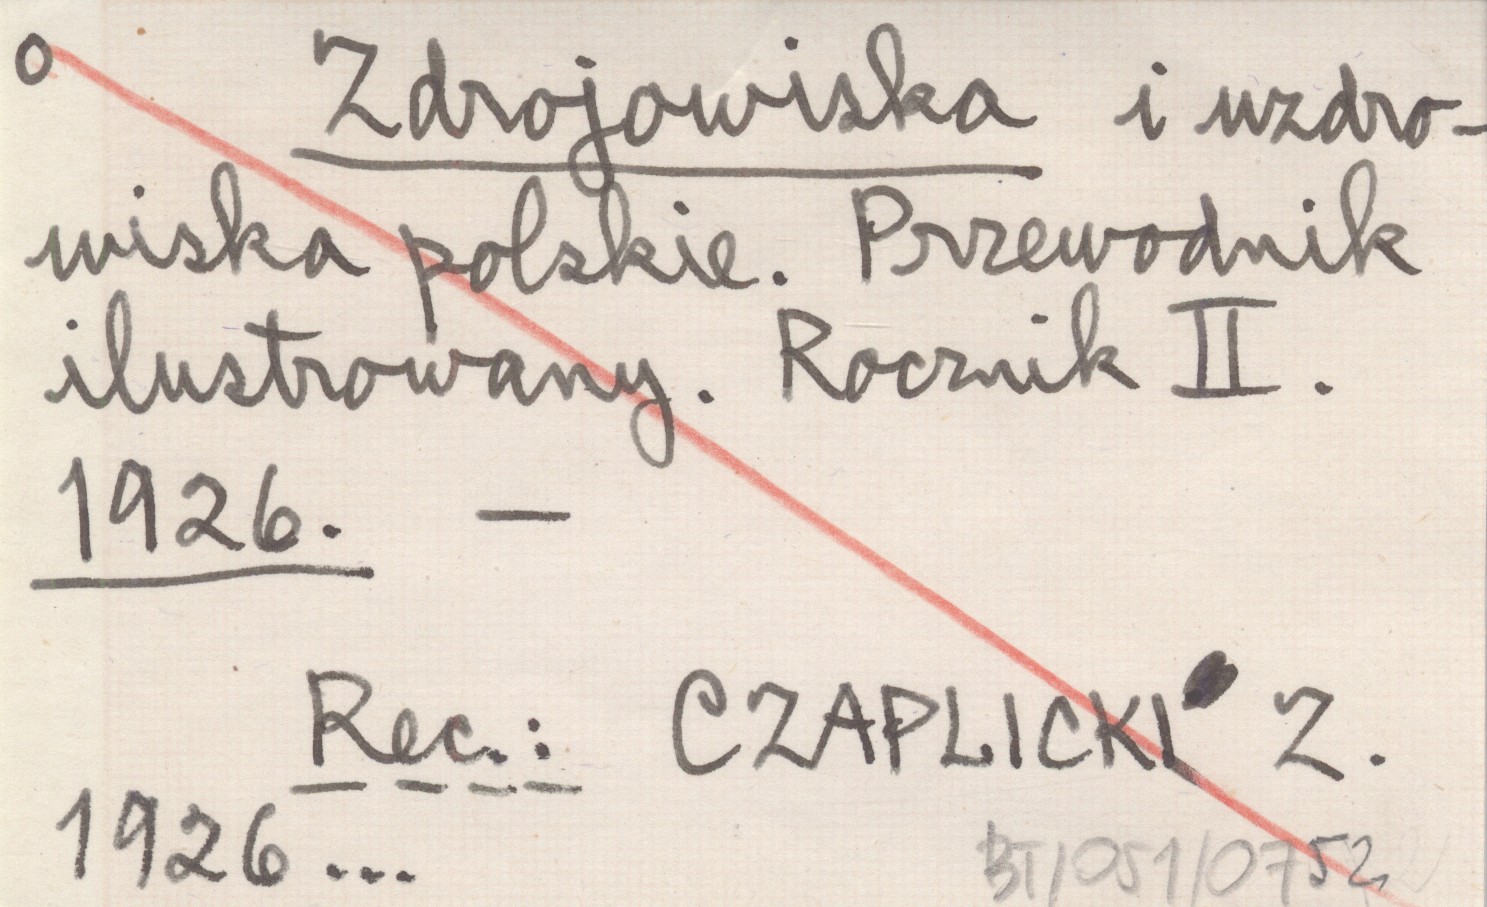 o Zdrojowiska i uzdro-
wiska polskie. Przewodnik
ilustrowany. Rocznik II.
1926. —
Rec.: CZAPLICKI Z.
1926...
BT/051/0752